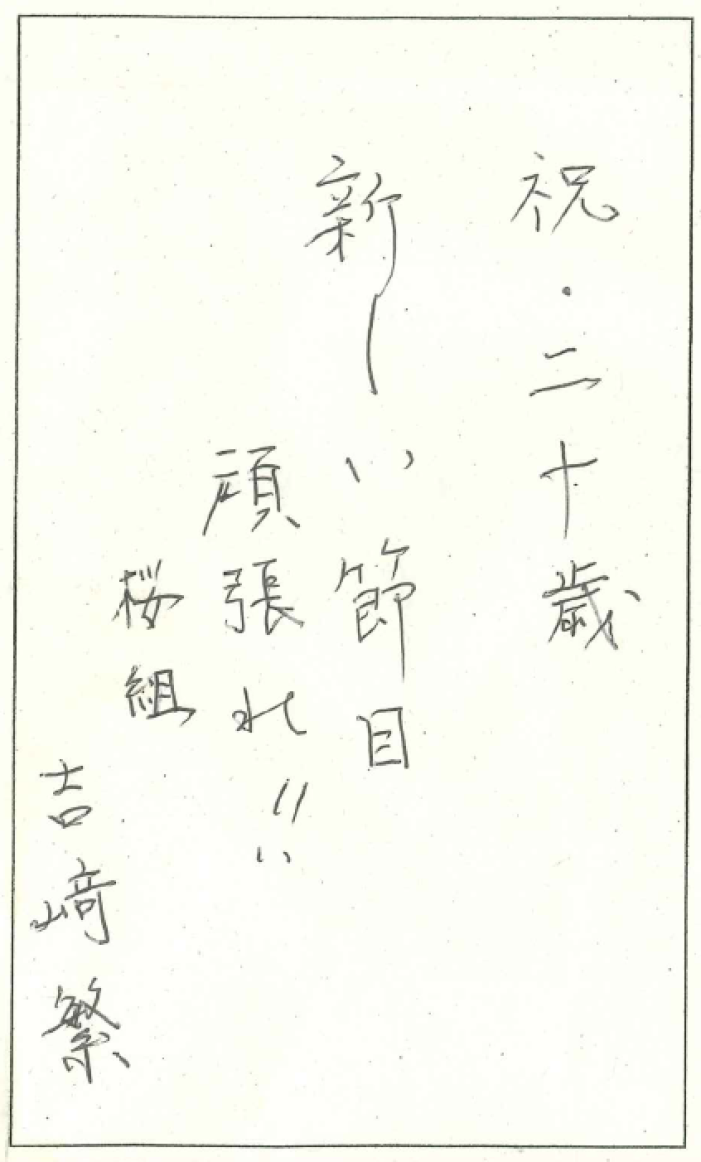 祝・二十歳
新しい節目
頑張れ!!
桜組
吉﨑繁